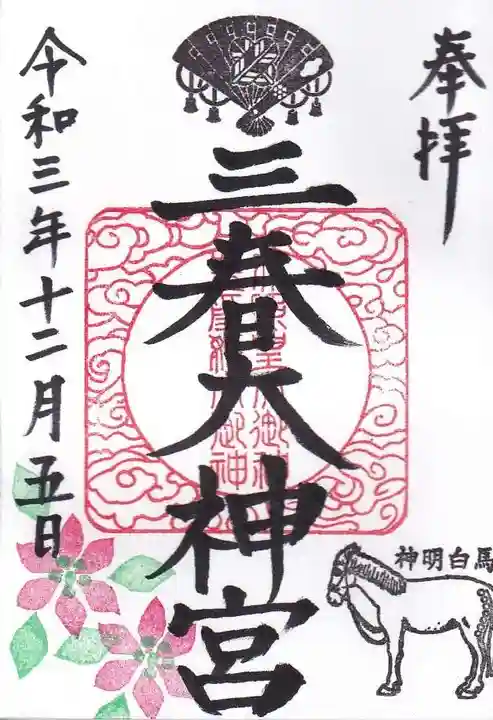 奉拝
三春大神宮
令和三年十二月五日
神明白馬